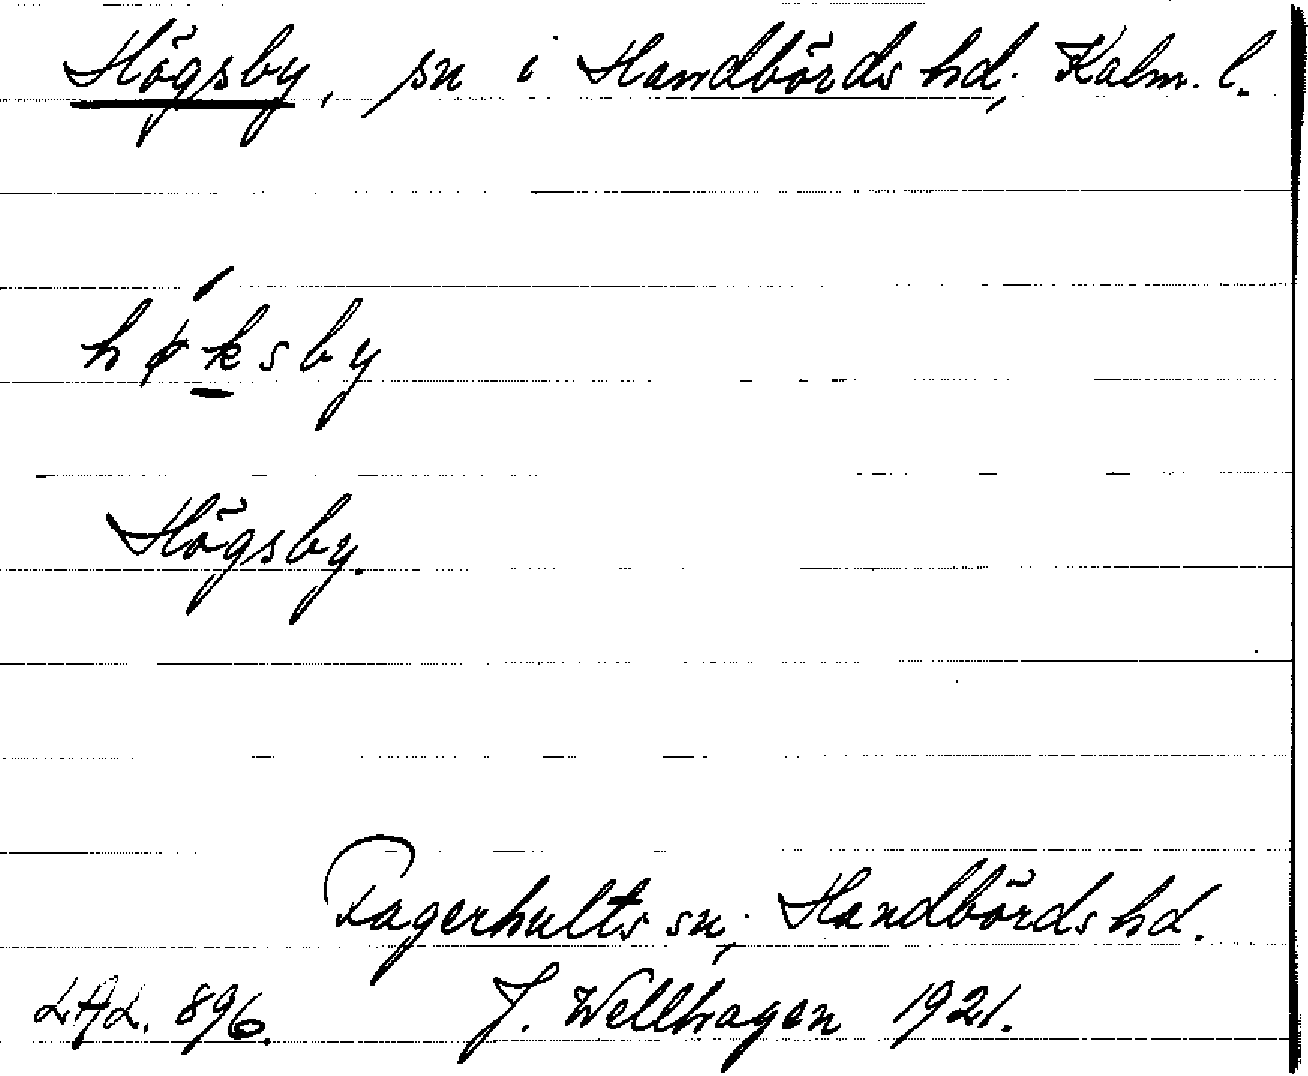 Högsby, sn i Handbörds hd; Kalm. l.
hǿksby
Högsby.
Fagerhults sn; Handbörds hd.
LAL. 896. J. Wellhagen 1921.